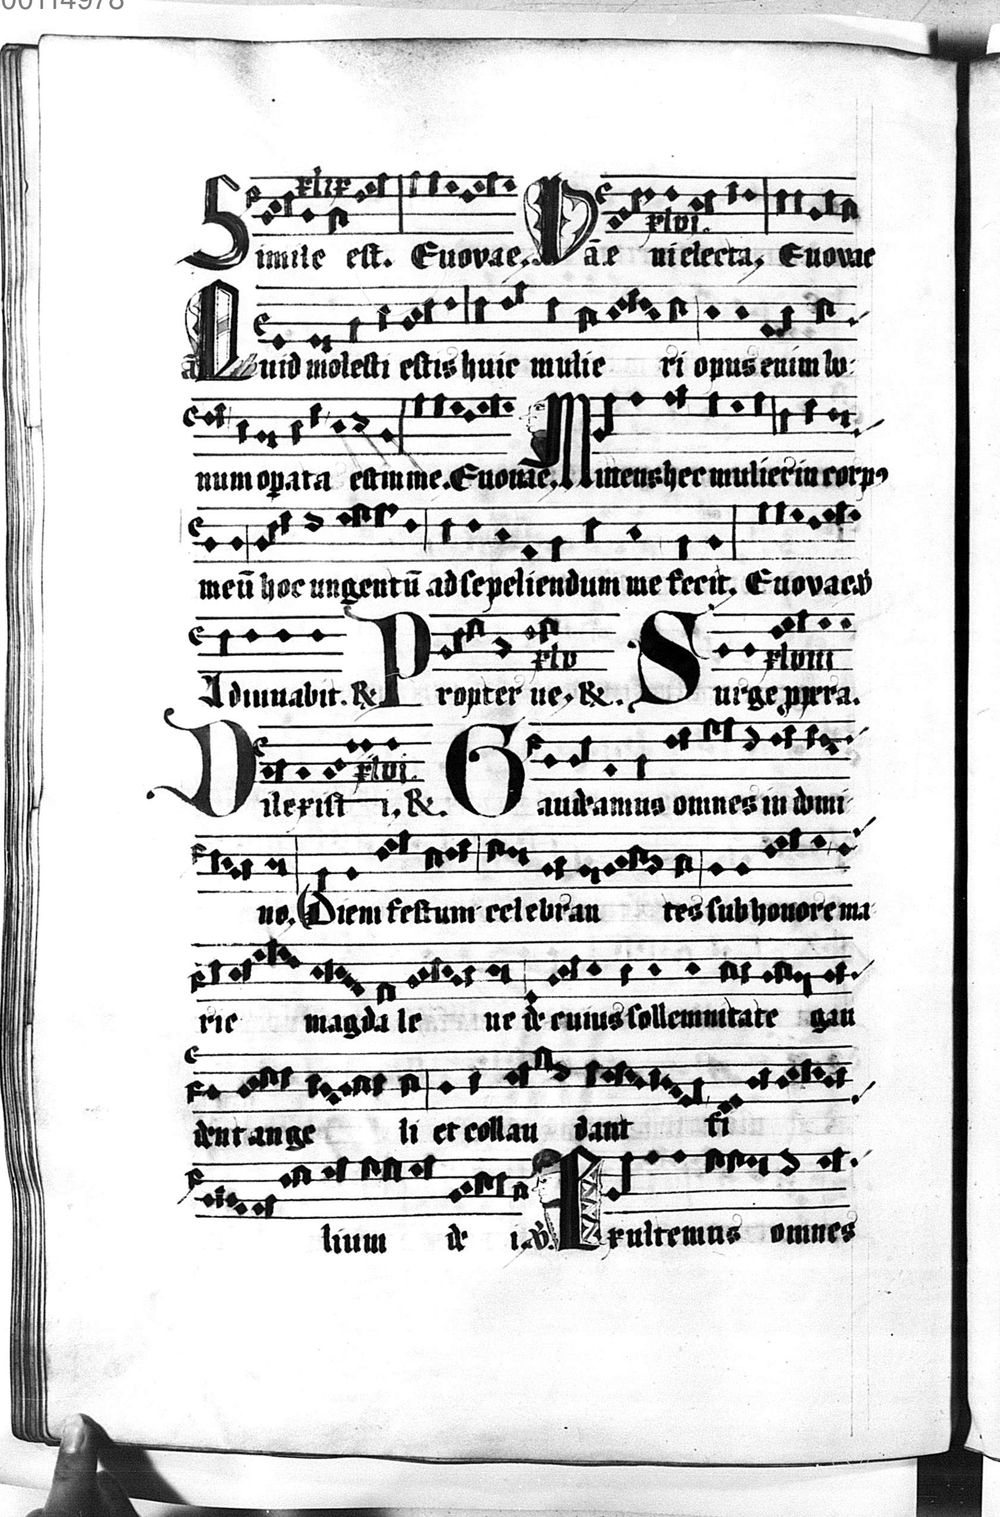 00114978
xlix xlvi.
Simile est. Euovae. Vāe ni electa, Euovae
Quid molesti estis huic mulie ri opus enim bo
num opata est in me. Euouae. Mittens hec mulier in corp⁹
meū hoc ungentū ad sepeliendum me fecit. Euovae. V
xlv xlviii
Adiuuabit. R. Propter ue, R. Surge ppera.
xlvi.
Dilexist i, R. Gaudeamus omnes in domi
no. Diem festum celebran tes sub honore ma
rie magda le ne de cuius sollemnitate gau
dent ange li et collau dant fi
lium de i. V. Exultemus omnes